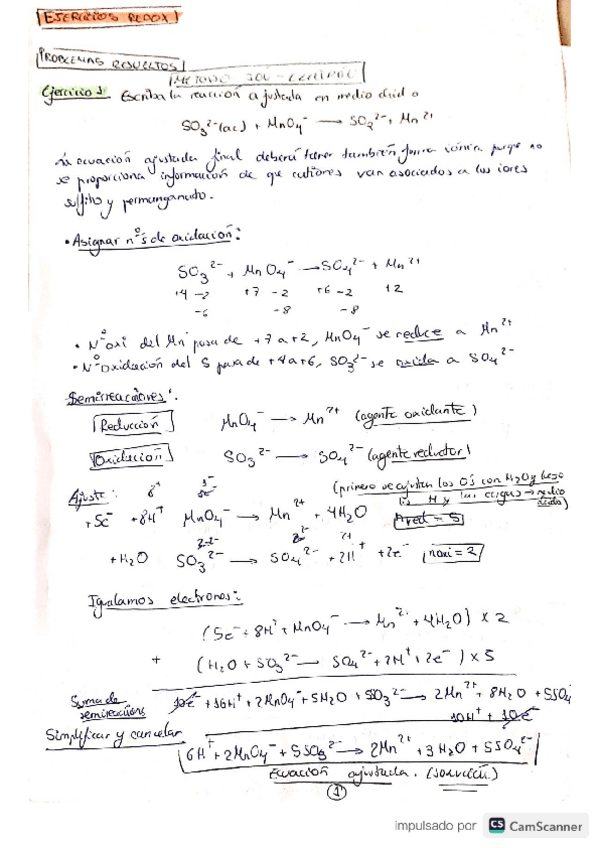 EJERCICIOS REDOX
PROBLEMAS RESUELTOS
METODO ION-
Ejercicio 1 Escriba la reacción ajustada en medio ácido
SO3^2-(ac) + MnO4^- → SO2^2- + Mn^2+
La ecuación ajustada final deberá tener también forma iónica porque no
se proporciona información de que cationes van asociados a los iones
sulfito y permanganato.
• Asignar nºs de oxidación:
SO3^2- + MnO4^- → SO4^2- + Mn^2+
+4 -2 +7 -2 +6 -2 +2
-6 -8 -8
• Nº oxi del Mn pasa de +7 a +2, MnO4^- se reduce a Mn^2+
• Nº oxidación del S pasa de +4 a +6, SO3^2- se oxida a SO4^2-
Semirreacciones:
Reducción MnO4^- → Mn^2+ (agente oxidante)
Oxidación SO3^2- → SO4^2- (agente reductor)
(primero se ajustan los O's con H2O y luego
Ajuste: los H y las cargas → medio
ácido)
+5e^- +8H^+ MnO4^- → Mn^2+ + 4H2O nred = 5
+H2O SO3^2- → SO4^2- + 2H^+ +2e^- noxi = 2
Igualamos electrones:
(5e^- + 8H^+ + MnO4^- → Mn^2+ + 4H2O) x 2
+ (H2O + SO3^2- → SO4^2- + 2H^+ + 2e^-) x 5
Suma de
semireacciones 10e^- + 16H^+ + 2MnO4^- + 5H2O + 5SO3^2- → 2Mn^2+ + 8H2O + 5SO4
10H^+ + 10e^-
Simplificar y cancelar
6H^+ + 2MnO4^- + 5SO3^2- → 2Mn^2+ + 3H2O + 5SO4^2-
Ecuación ajustada. (solución)
1
impulsado por CS CamScanner